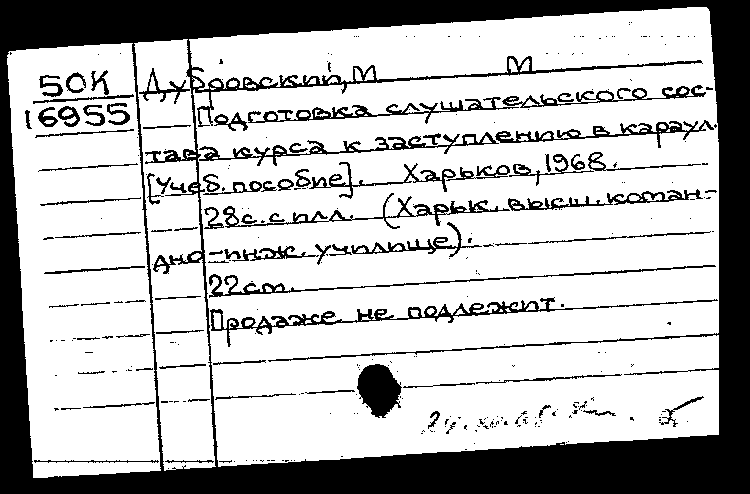 50К Дубровский, М М
16955 Подготовка слушательского сос-
тава курса к заступлению в караул.
[Учеб. пособие]. Харьков, 1968.
28с. с илл. (Харьк. высш. коман-
дно-инж. училище).
22cm.
Продаже не подлежит.